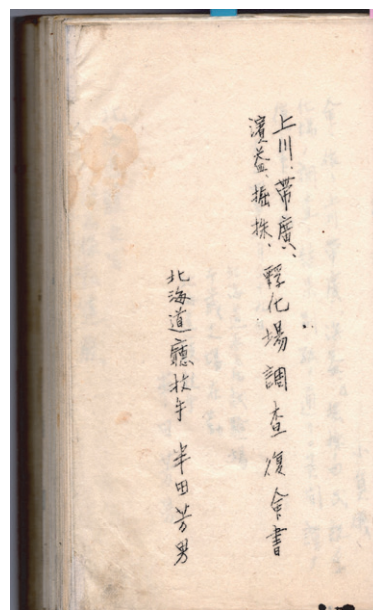 上川、帶廣、
濱益、掘株、
孵化場調査復命書
北海道廳技手 半田芳男